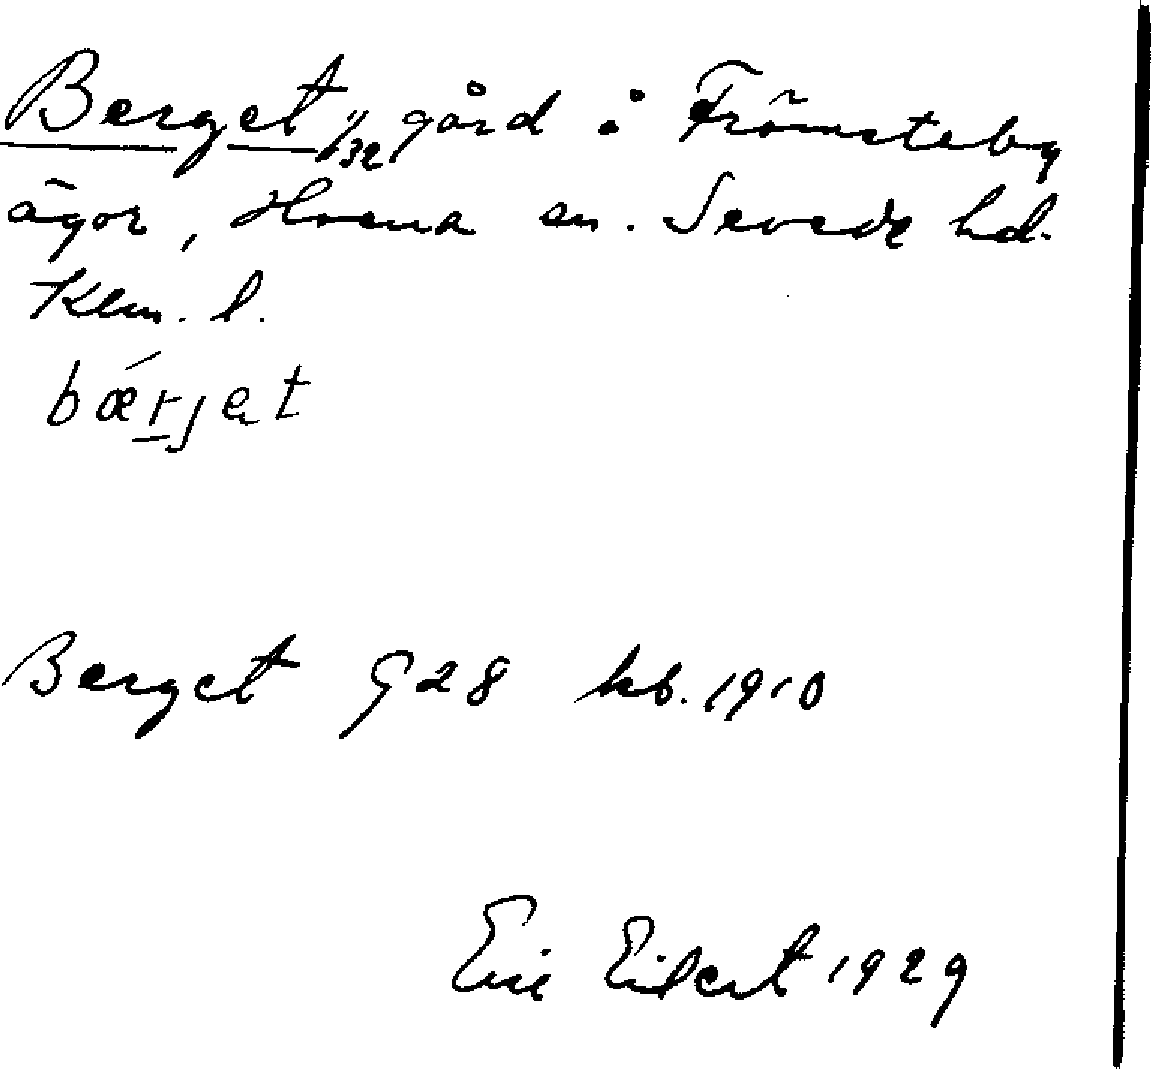 Berget 1/32 gård i Frömsteby
ägor, Hvena sn. Sevede hd.
Klm. l.
bǽrjet
Berget G 28 kb. 1910
Eric Eilert 1929